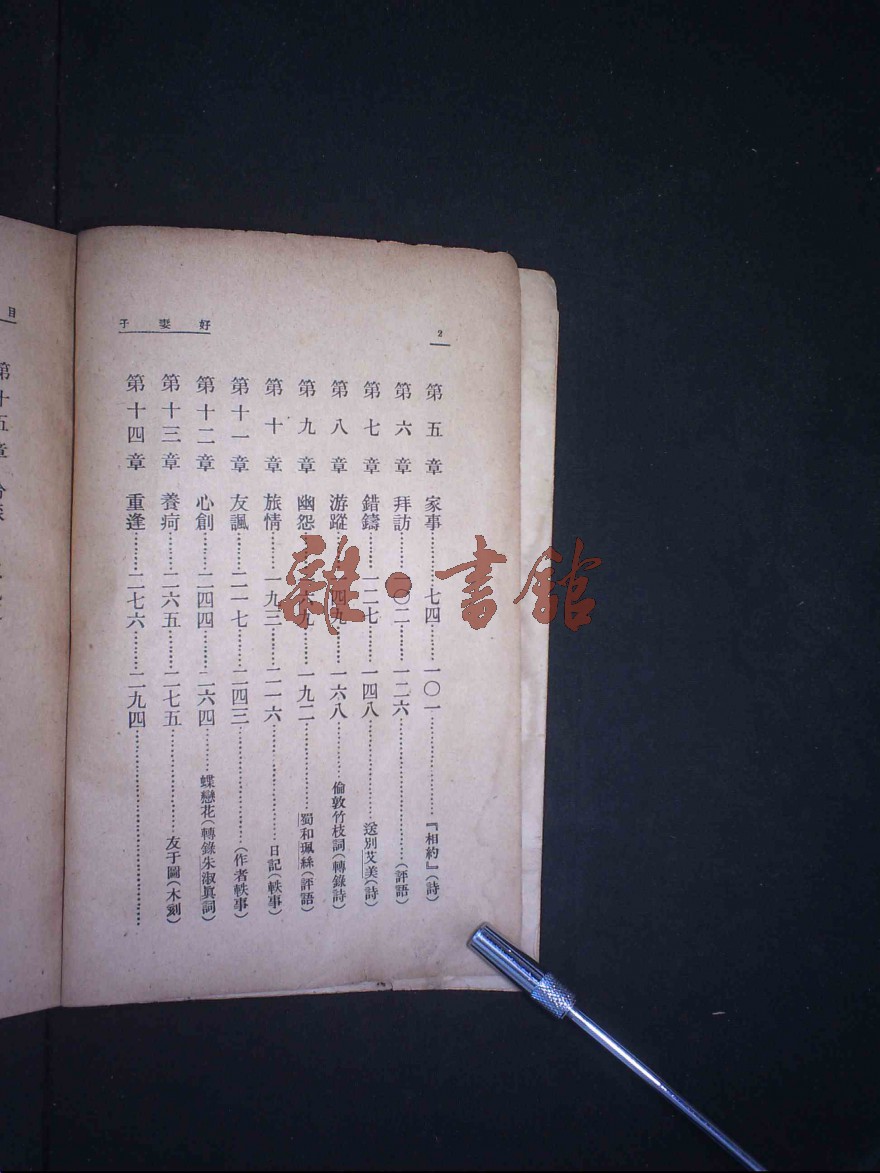 2
好妻子
第五章 家事………七四……一〇一………………『相約』(詩)
第六章 拜訪………一〇二……一二六………………(評語)
第七章 錯鑄………一二七……一四八………………送別艾美(詩)
第八章 游蹤………一四九……一六八………………倫敦竹枝詞(轉錄詩)
第九章 幽怨………一六九……一九二………………蜀和珮絲(評語)
第十章 旅情………一九三……二一六………………日記(軼事)
第十一章 友諷………二一七……二四三………………(作者軼事)
第十二章 心創………二四四……二六四………蝶戀花(轉錄朱淑眞詞)
第十三章 養疴………二六五……二七五………………友于圖(木刻)
第十四章 重逢………二七六……二九四………………
目
第十五章
雜·書館